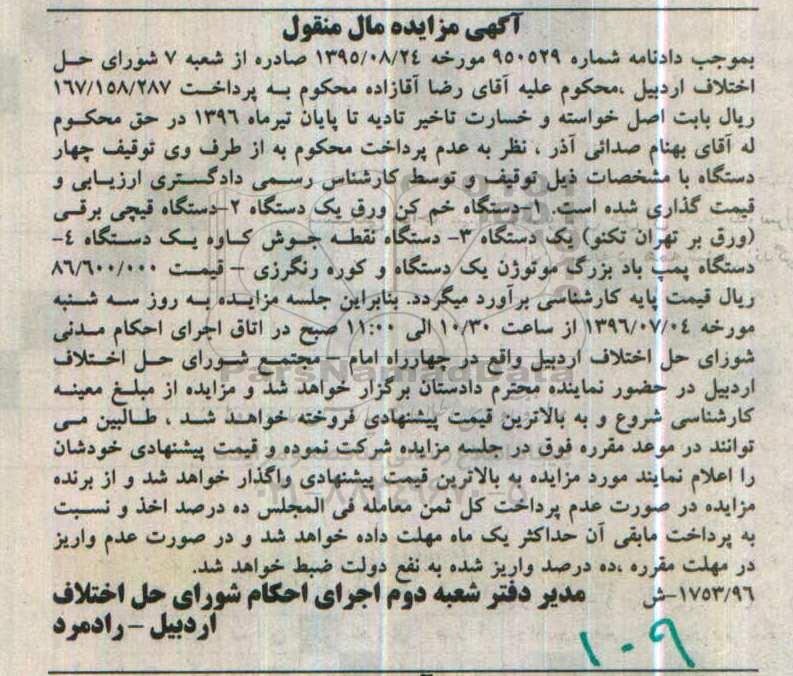 آگهی مزایده مال منقول
بموجب دادنامه شماره ۹۵۰۵۲۹ مورخه ۱۳۹۵/۰۸/۲٤ صادره از شعبه ۷ شورای حل
اختلاف اردبیل ،محکوم علیه آقای رضا آقازاده محکوم به پرداخت ۱٦۷/۱۵۸/۲۸۷
ریال بابت اصل خواسته و خسارت تاخیر تادیه تا پایان تیرماه ۱۳۹٦ در حق محکوم
له آقای بهنام صدائی آذر ، نظر به عدم پرداخت محکوم به از طرف وی توقیف چهار
دستگاه با مشخصات ذیل توقیف و توسط کارشناس رسمی دادگستری ارزیابی و
قیمت گذاری شده است. ۱-دستگاه خم کن ورق یک دستگاه ۲-دستگاه قیچی برقی
(ورق بر تهران تکنو) یک دستگاه ۳- دستگاه نقطه جوش کاوه یک دستگاه ٤-
دستگاه پمپ باد بزرگ موتوژن یک دستگاه و کوره رنگرزی – قیمت ۸٦/٦۰۰/۰۰۰
ریال قیمت پایه کارشناسی برآورد میگردد. بنابراین جلسه مزایده به روز سه شنبه
مورخه ۱۳۹٦/۰۷/۰٤ از ساعت ۱۰/۳۰ الی ۱۱:۰۰ صبح در اتاق اجرای احکام مدنی
شورای حل اختلاف اردبیل واقع در چهارراه امام – مجتمع شورای حل اختلاف
اردبیل در حضور نماینده محترم دادستان برگزار خواهد شد و مزایده از مبلغ معینه
کارشناسی شروع و به بالاترین قیمت پیشنهادی فروخته خواهد شد ، طالبین می
توانند در موعد مقرره فوق در جلسه مزایده شرکت نموده و قیمت پیشنهادی خودشان
را اعلام نمایند مورد مزایده به بالاترین قیمت پیشنهادی واگذار خواهد شد و از برنده
مزایده در صورت عدم پرداخت کل ثمن معامله فی المجلس ده درصد اخذ و نسبت
به پرداخت مابقی آن حداکثر یک ماه مهلت داده خواهد شد و در صورت عدم واریز
در مهلت مقرره ،ده درصد واریز شده به نفع دولت ضبط خواهد شد.
۱۷۵۳/۹٦-ش مدیر دفتر شعبه دوم اجرای احکام شورای حل اختلاف
اردبیل – رادمرد
۱۰۹
ParsNamadData